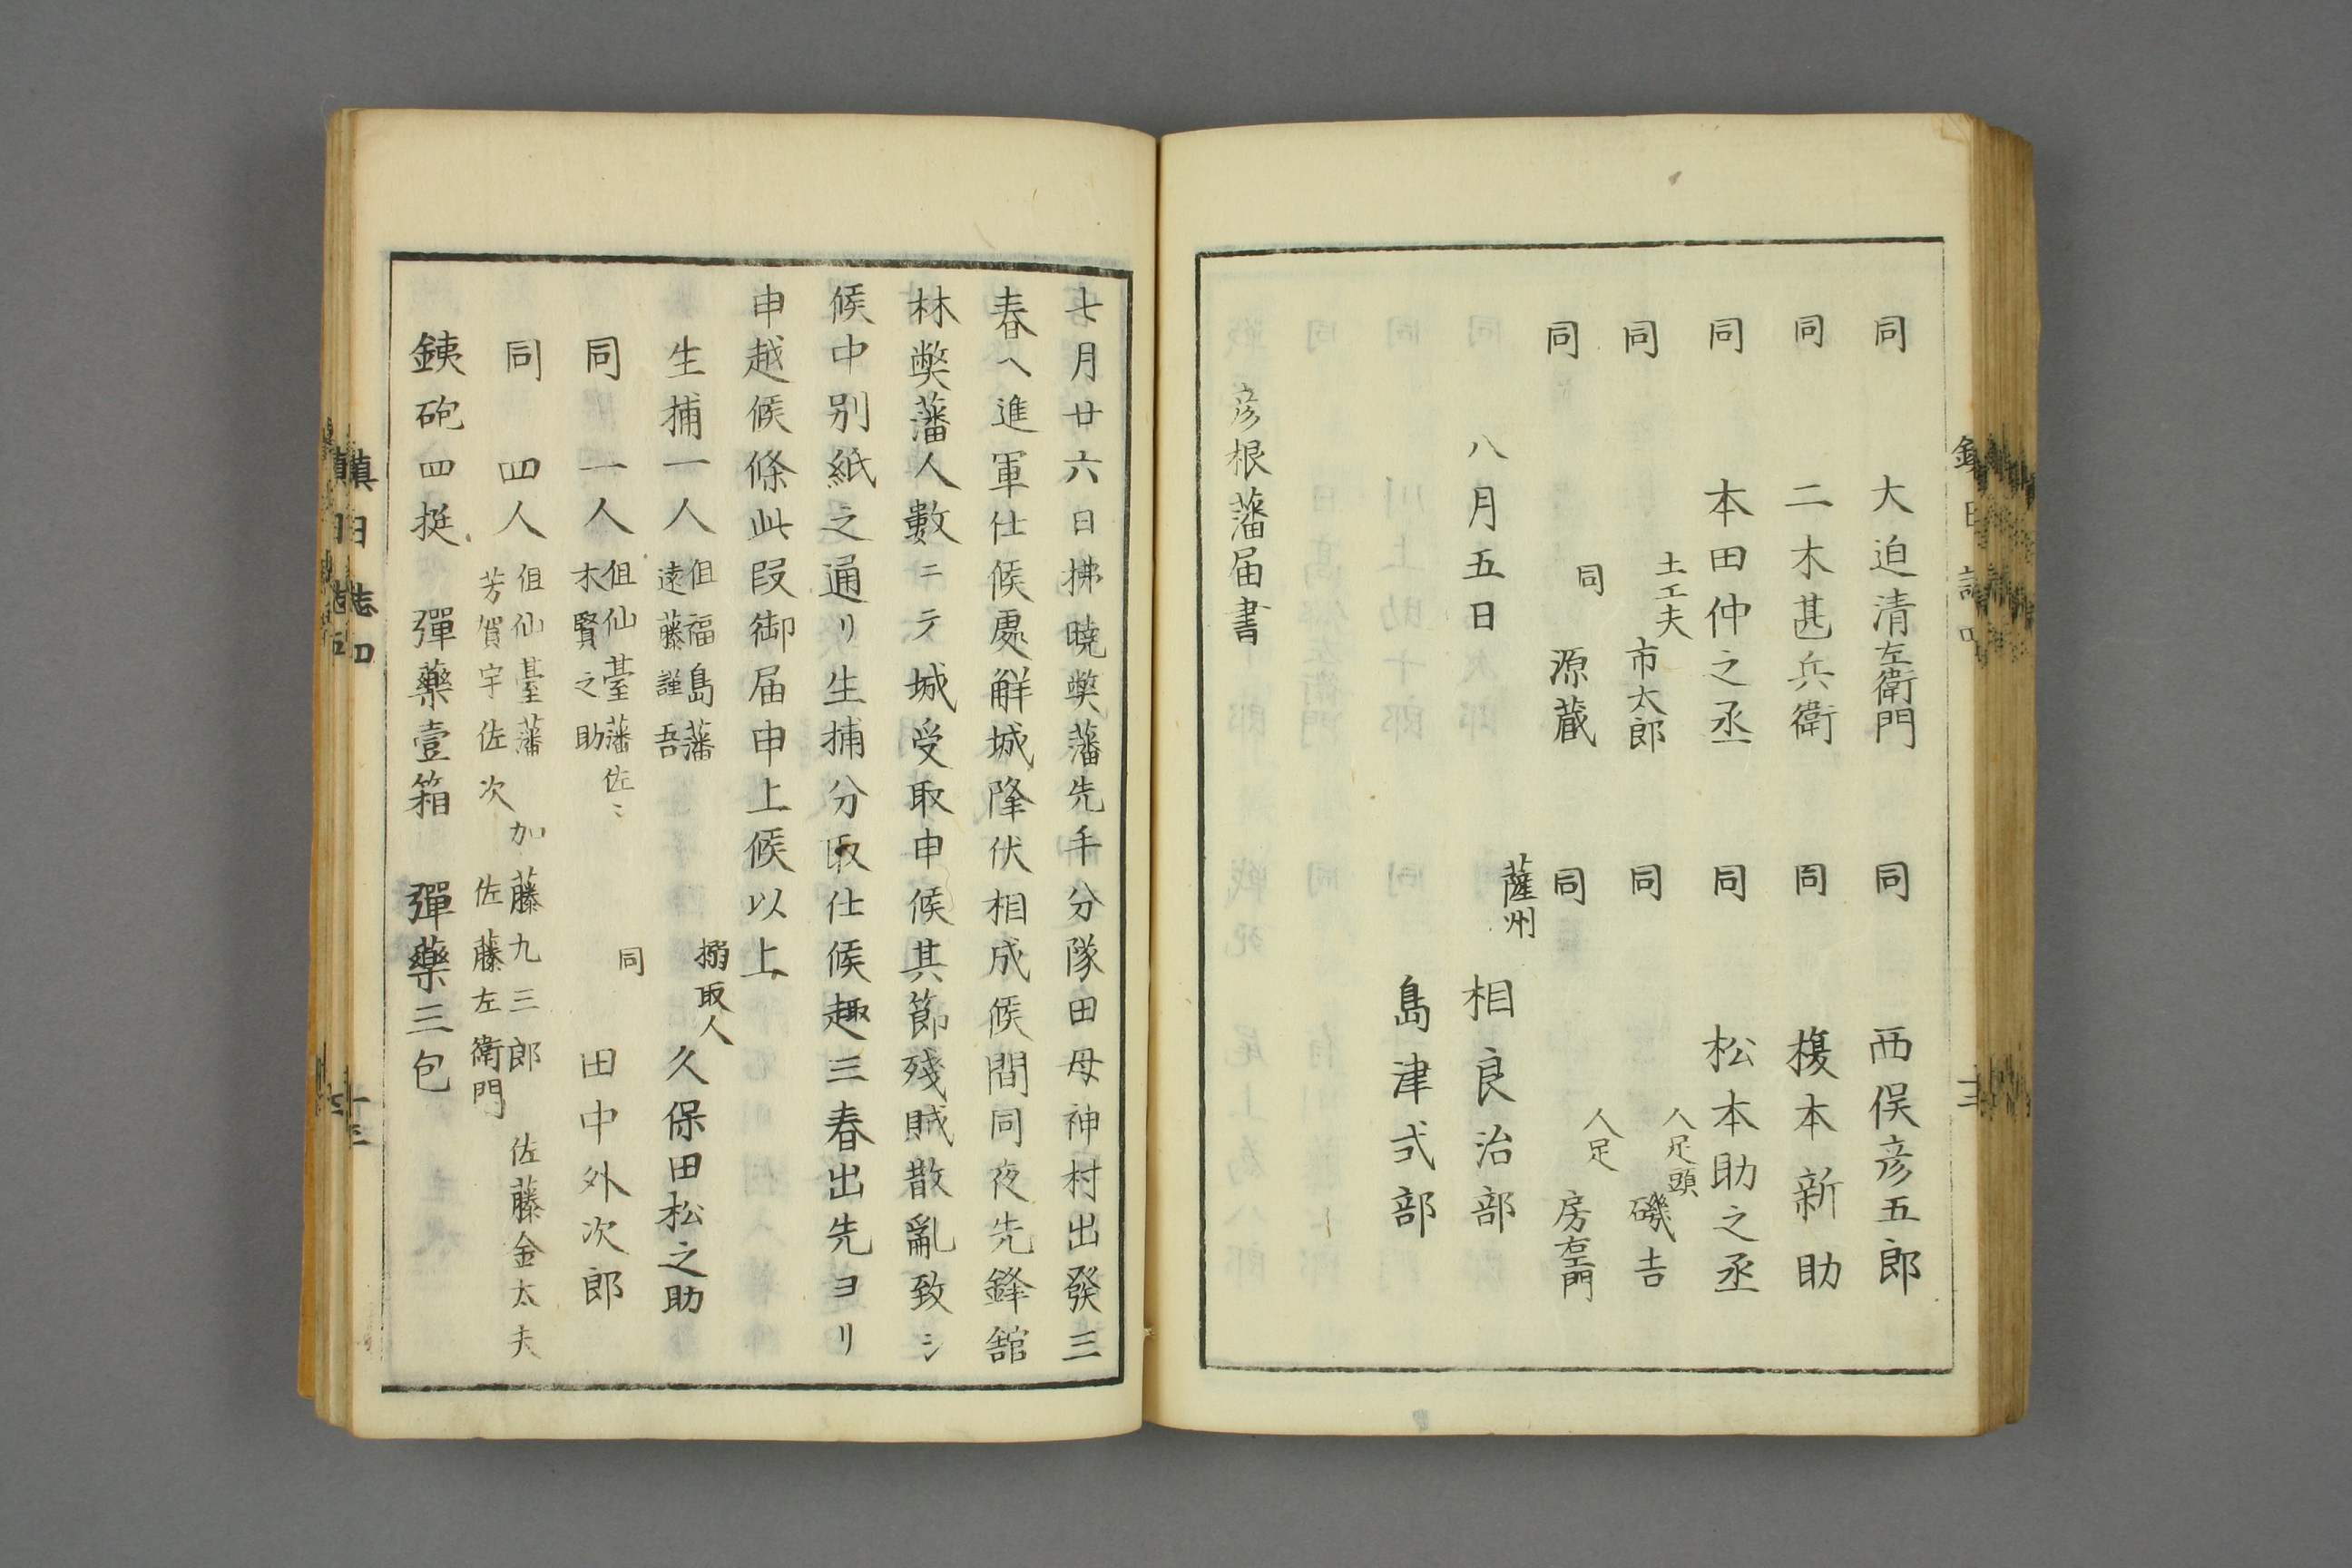 同　大迫清左衛門　同　西俣彦五郎
同　二木甚兵衛　同　榎本新助
同　本田仲之丞　同　松本助之丞
同　土工夫　市太郎　同　人足頭　磯吉
同　同　源蔵　同　人足　房右エ門
八月五日　薩州　相良治部
島津式部
彦根藩届書
七月廿六日拂曉弊藩先手分隊田母神村出發三
春ヘ進軍仕候處觧城降伏相成候間同夜先鋒舘
林弊藩人數ニテ城受取申候其節殘賊散亂致シ
候中别紙之通リ生捕分取仕候趣三春出先ヨリ
申越候條此段御届申上候以上
生捕一人　但福島藩　遠藤謹吾　搦取人　久保田松之助
同　一人　但仙臺藩佐々木賢之助　同　田中外次郎
同　四人　但仙臺藩　加藤九三郎　佐藤金太夫
芳賀宇佐次　佐藤左衛門
銕砲四挺　彈藥壹箱　彈藥三包
鎮日志四
十三